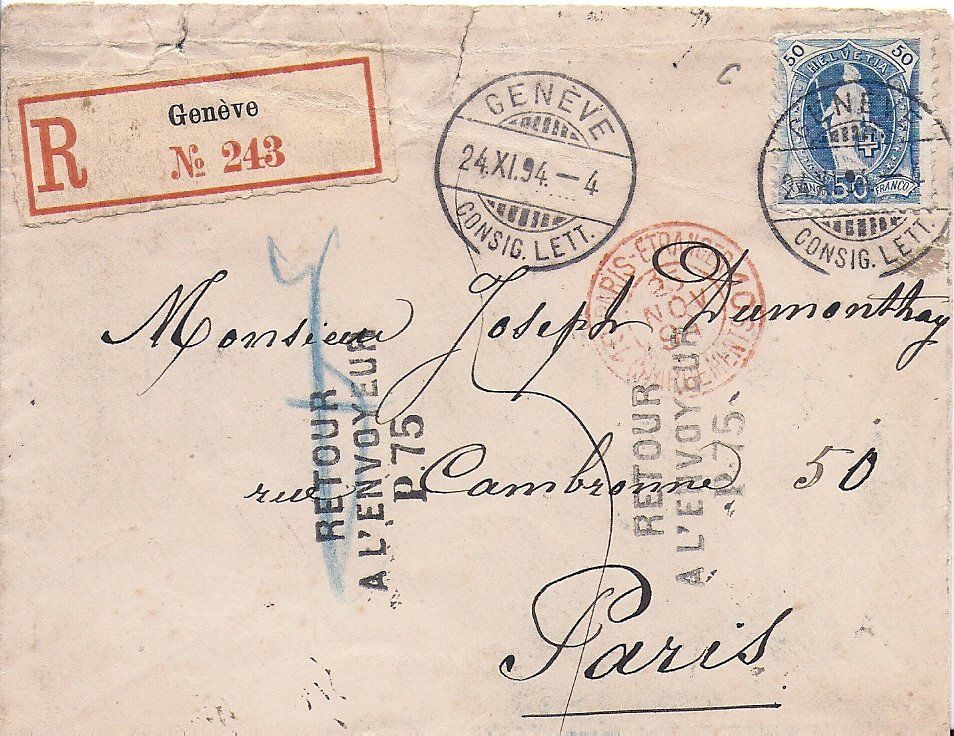 R
Genève
№ 243
GENÈVE
24.XI.94.-4
CONSIG. LETT.
50 50
HELVETIA
50
FRANCO
CONSIG. LETT.
PARIS-ETRANGER
NOV
94
Monsieur Joseph Dumonthay
rue Cambronne 50
Paris
RETOUR
A L'ENVOYEUR
P.75
RETOUR
A L'ENVOYEUR
P.75